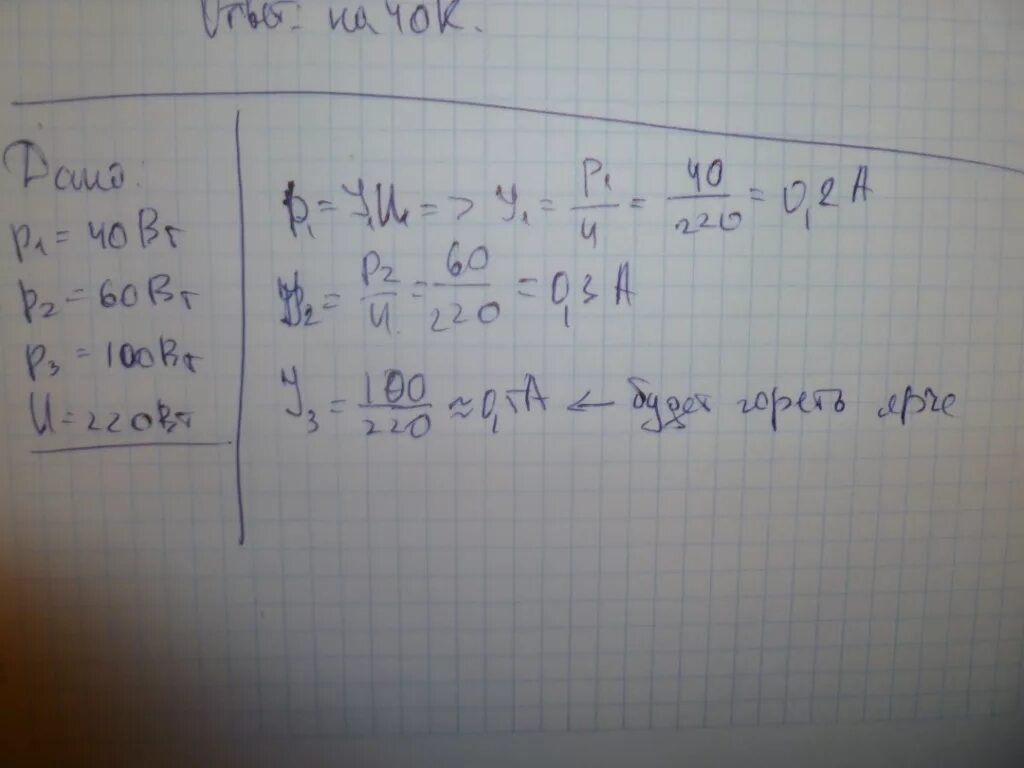 Ответ: на 40К.
Дано:
p₁ = 40 Вт
p₂ = 60 Вт
p₃ = 100 Вт
U = 220 Вт
p₁ = У₁U₁ => У₁ = P₁/U = 40/220 = 0,2 А
У₂ = P₂/U = 60/220 = 0,3 А
У₃ = 100/220 ≈ 0,5А ← будет гореть ярче